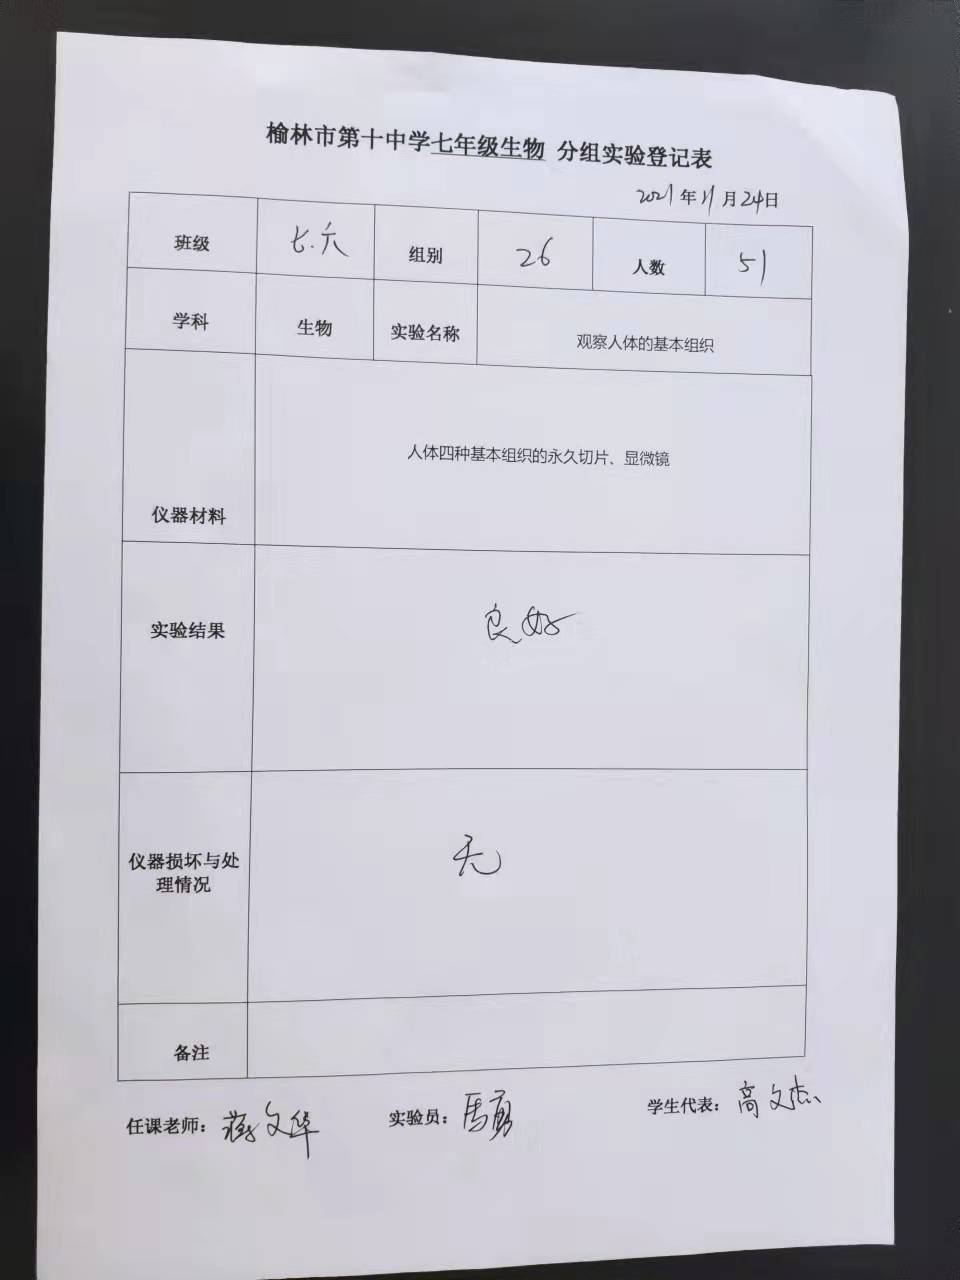 榆林市第十中学七年级生物 分组实验登记表
2021年11月24日
班级 七.六 组别 26 人数 51
学科 生物 实验名称 观察人体的基本组织
仪器材料 人体四种基本组织的永久切片、显微镜
实验结果 良好
仪器损坏与处
理情况 无
备注
任课老师：蒋文华 实验员：马勇 学生代表：高文杰